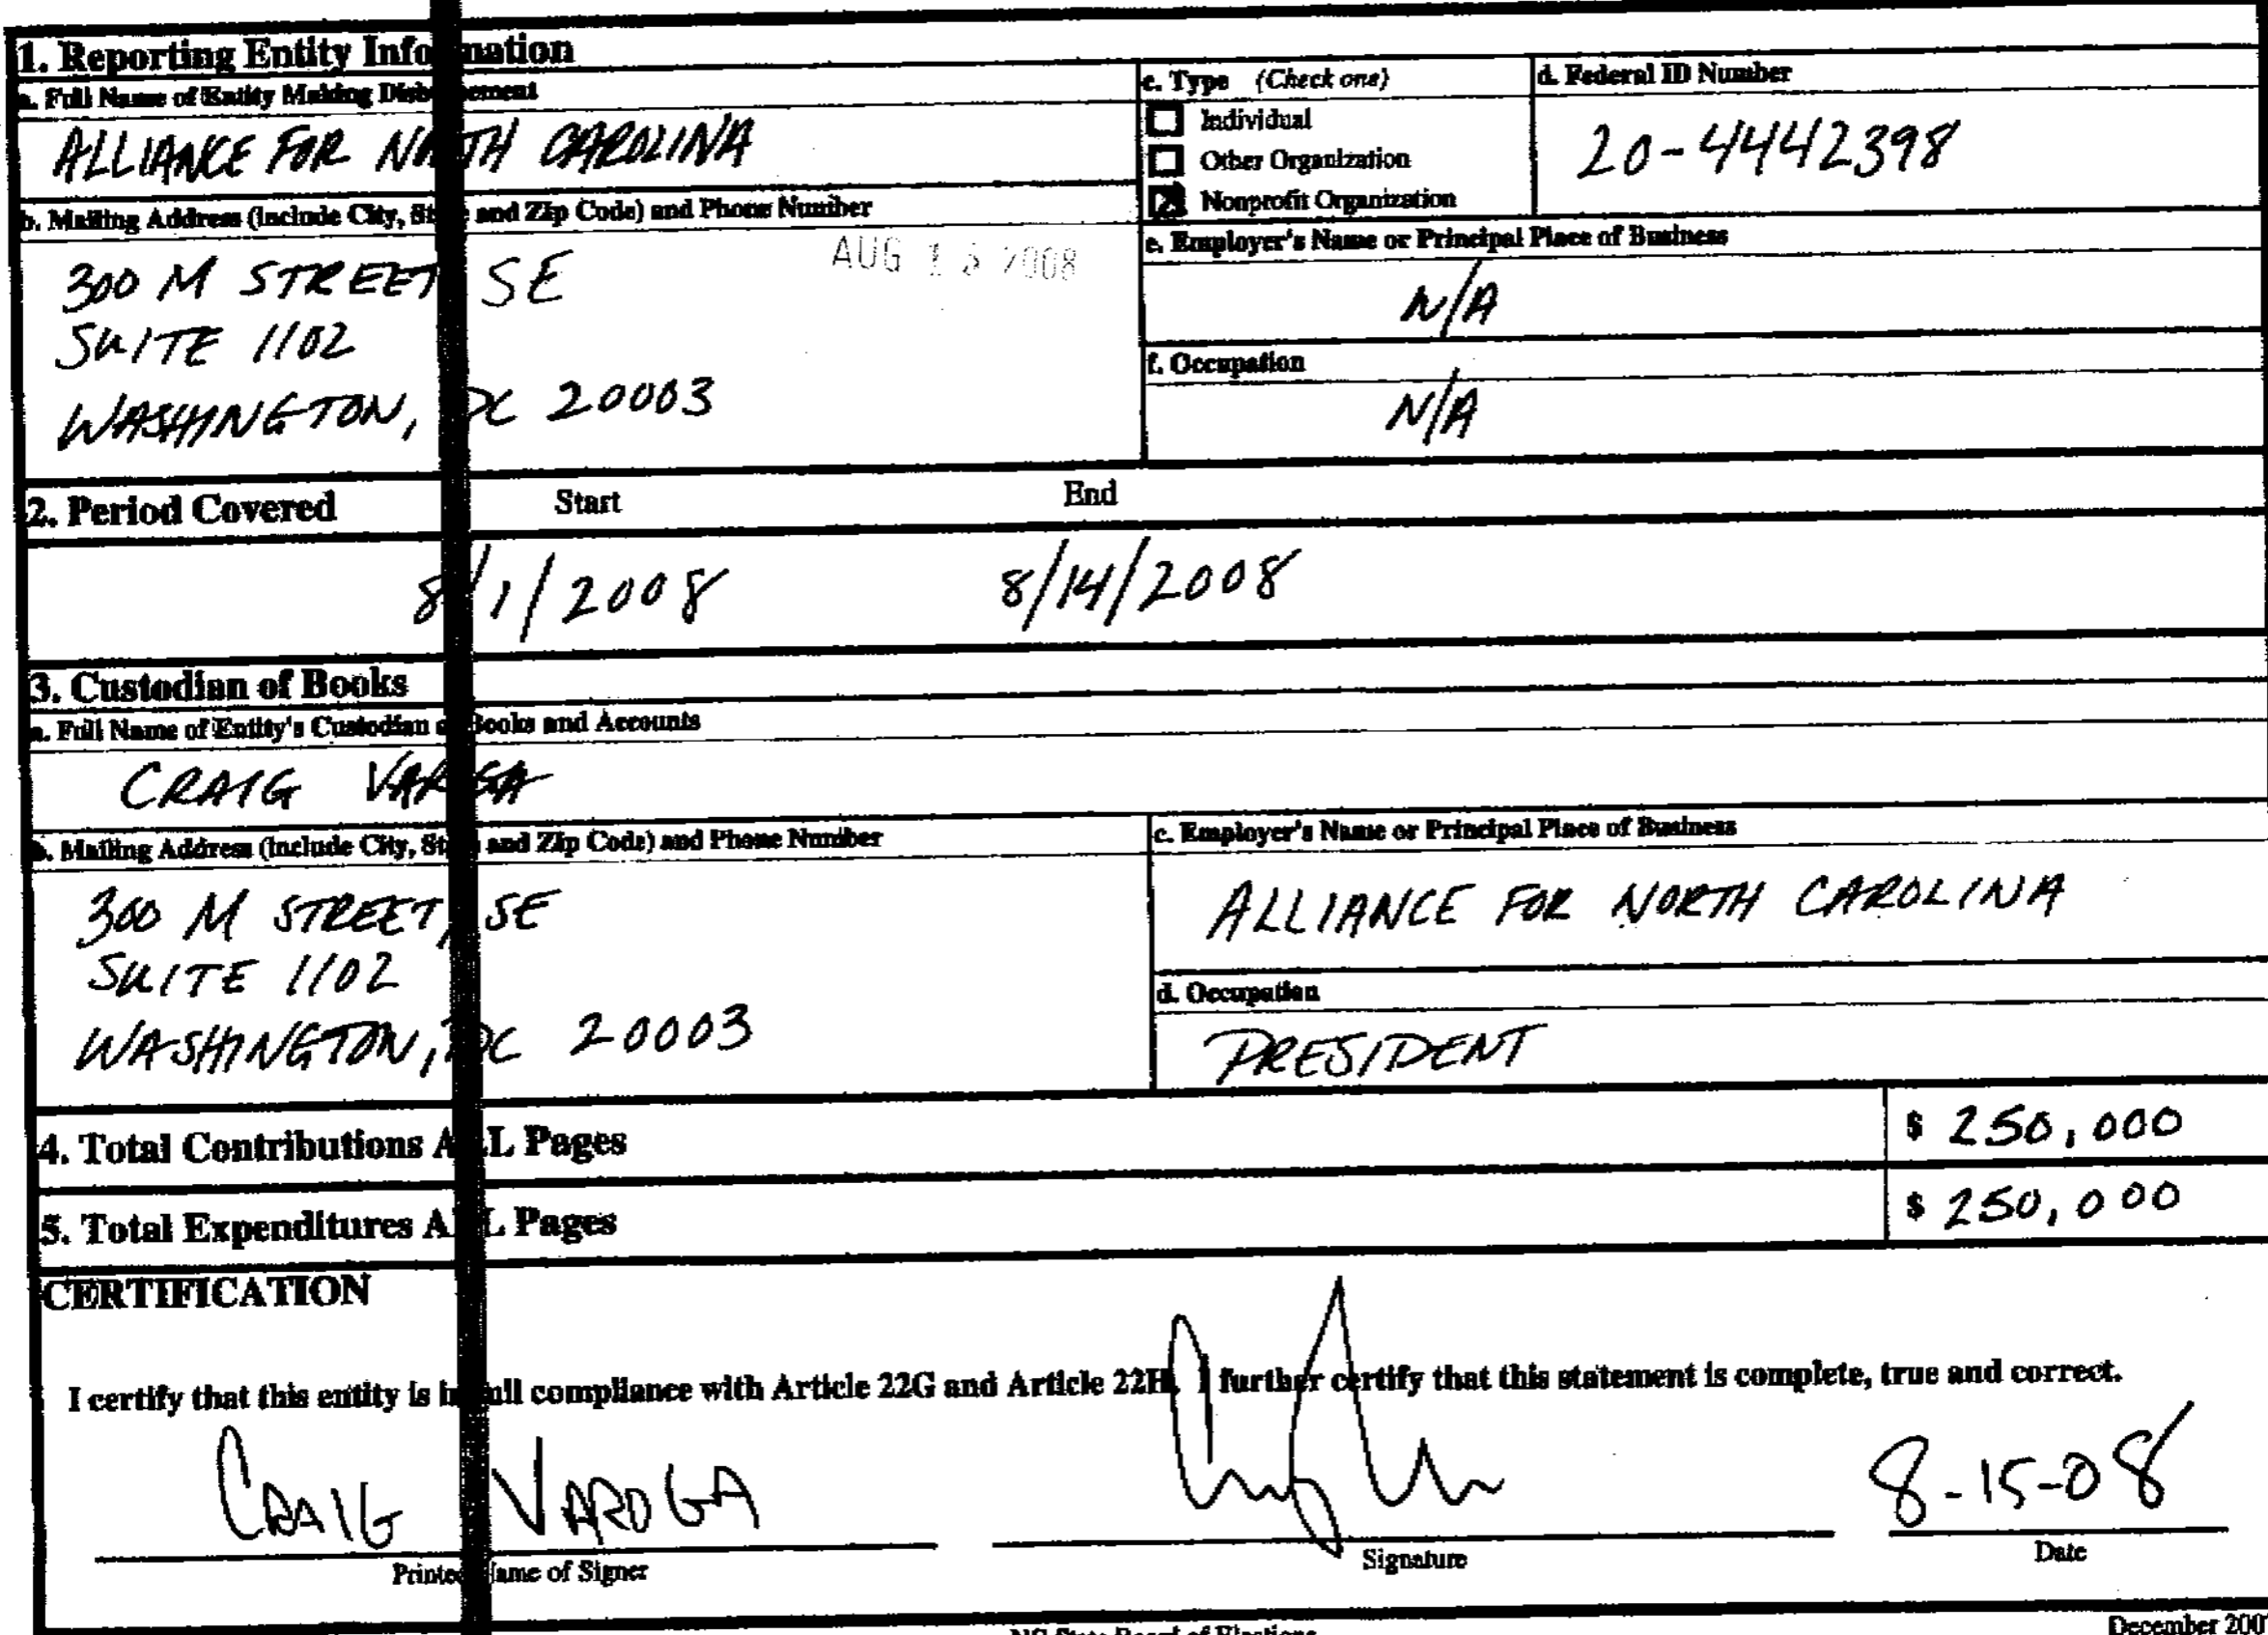 1. Reporting Entity Information
a. Full Name of Entity Making Disbursement
ALLIANCE FOR NORTH CAROLINA
c. Type (Check one)
Individual
Other Organization
Nonprofit Organization
d. Federal ID Number
20-4442398
b. Mailing Address (Include City, State and Zip Code) and Phone Number
300 M STREET SE
SUITE 1102
WASHINGTON, DC 20003
AUG 2008
e. Employer's Name or Principal Place of Business
N/A
f. Occupation
N/A
2. Period Covered Start End
8/1/2008 8/14/2008
3. Custodian of Books
a. Full Name of Entity's Custodian of Books and Accounts
CRAIG
b. Mailing Address (Include City, State and Zip Code) and Phone Number
300 M STREET, SE
SUITE 1102
WASHINGTON, DC 20003
c. Employer's Name or Principal Place of Business
ALLIANCE FOR NORTH CAROLINA
d. Occupation
PRESIDENT
4. Total Contributions ALL Pages $ 250,000
5. Total Expenditures ALL Pages $ 250,000
CERTIFICATION
I certify that this entity is in full compliance with Article 22G and Article 22H. I further certify that this statement is complete, true and correct.
CRAIG VAROGA 8-15-08
Printed Name of Signer Signature Date
NC State Board of Elections December 200